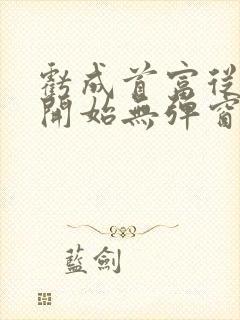 虧成首富從
開始無彈窗
藍劍